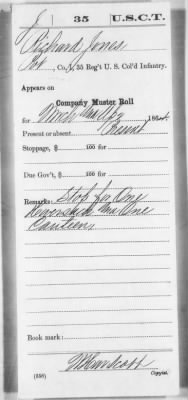 J 35 U.S.C.T.
Richard Jones
Co. I, 35 Reg't U. S. Col'd Infantry.
Appears on
Company Muster Roll
for March and Apr, 186
Present or absent Present
Stoppage, $ 100 for
Due Gov't, $ 100 for
Remarks: Stop for One
Haversack One
Canteen
Book mark:
(358) Copyist.